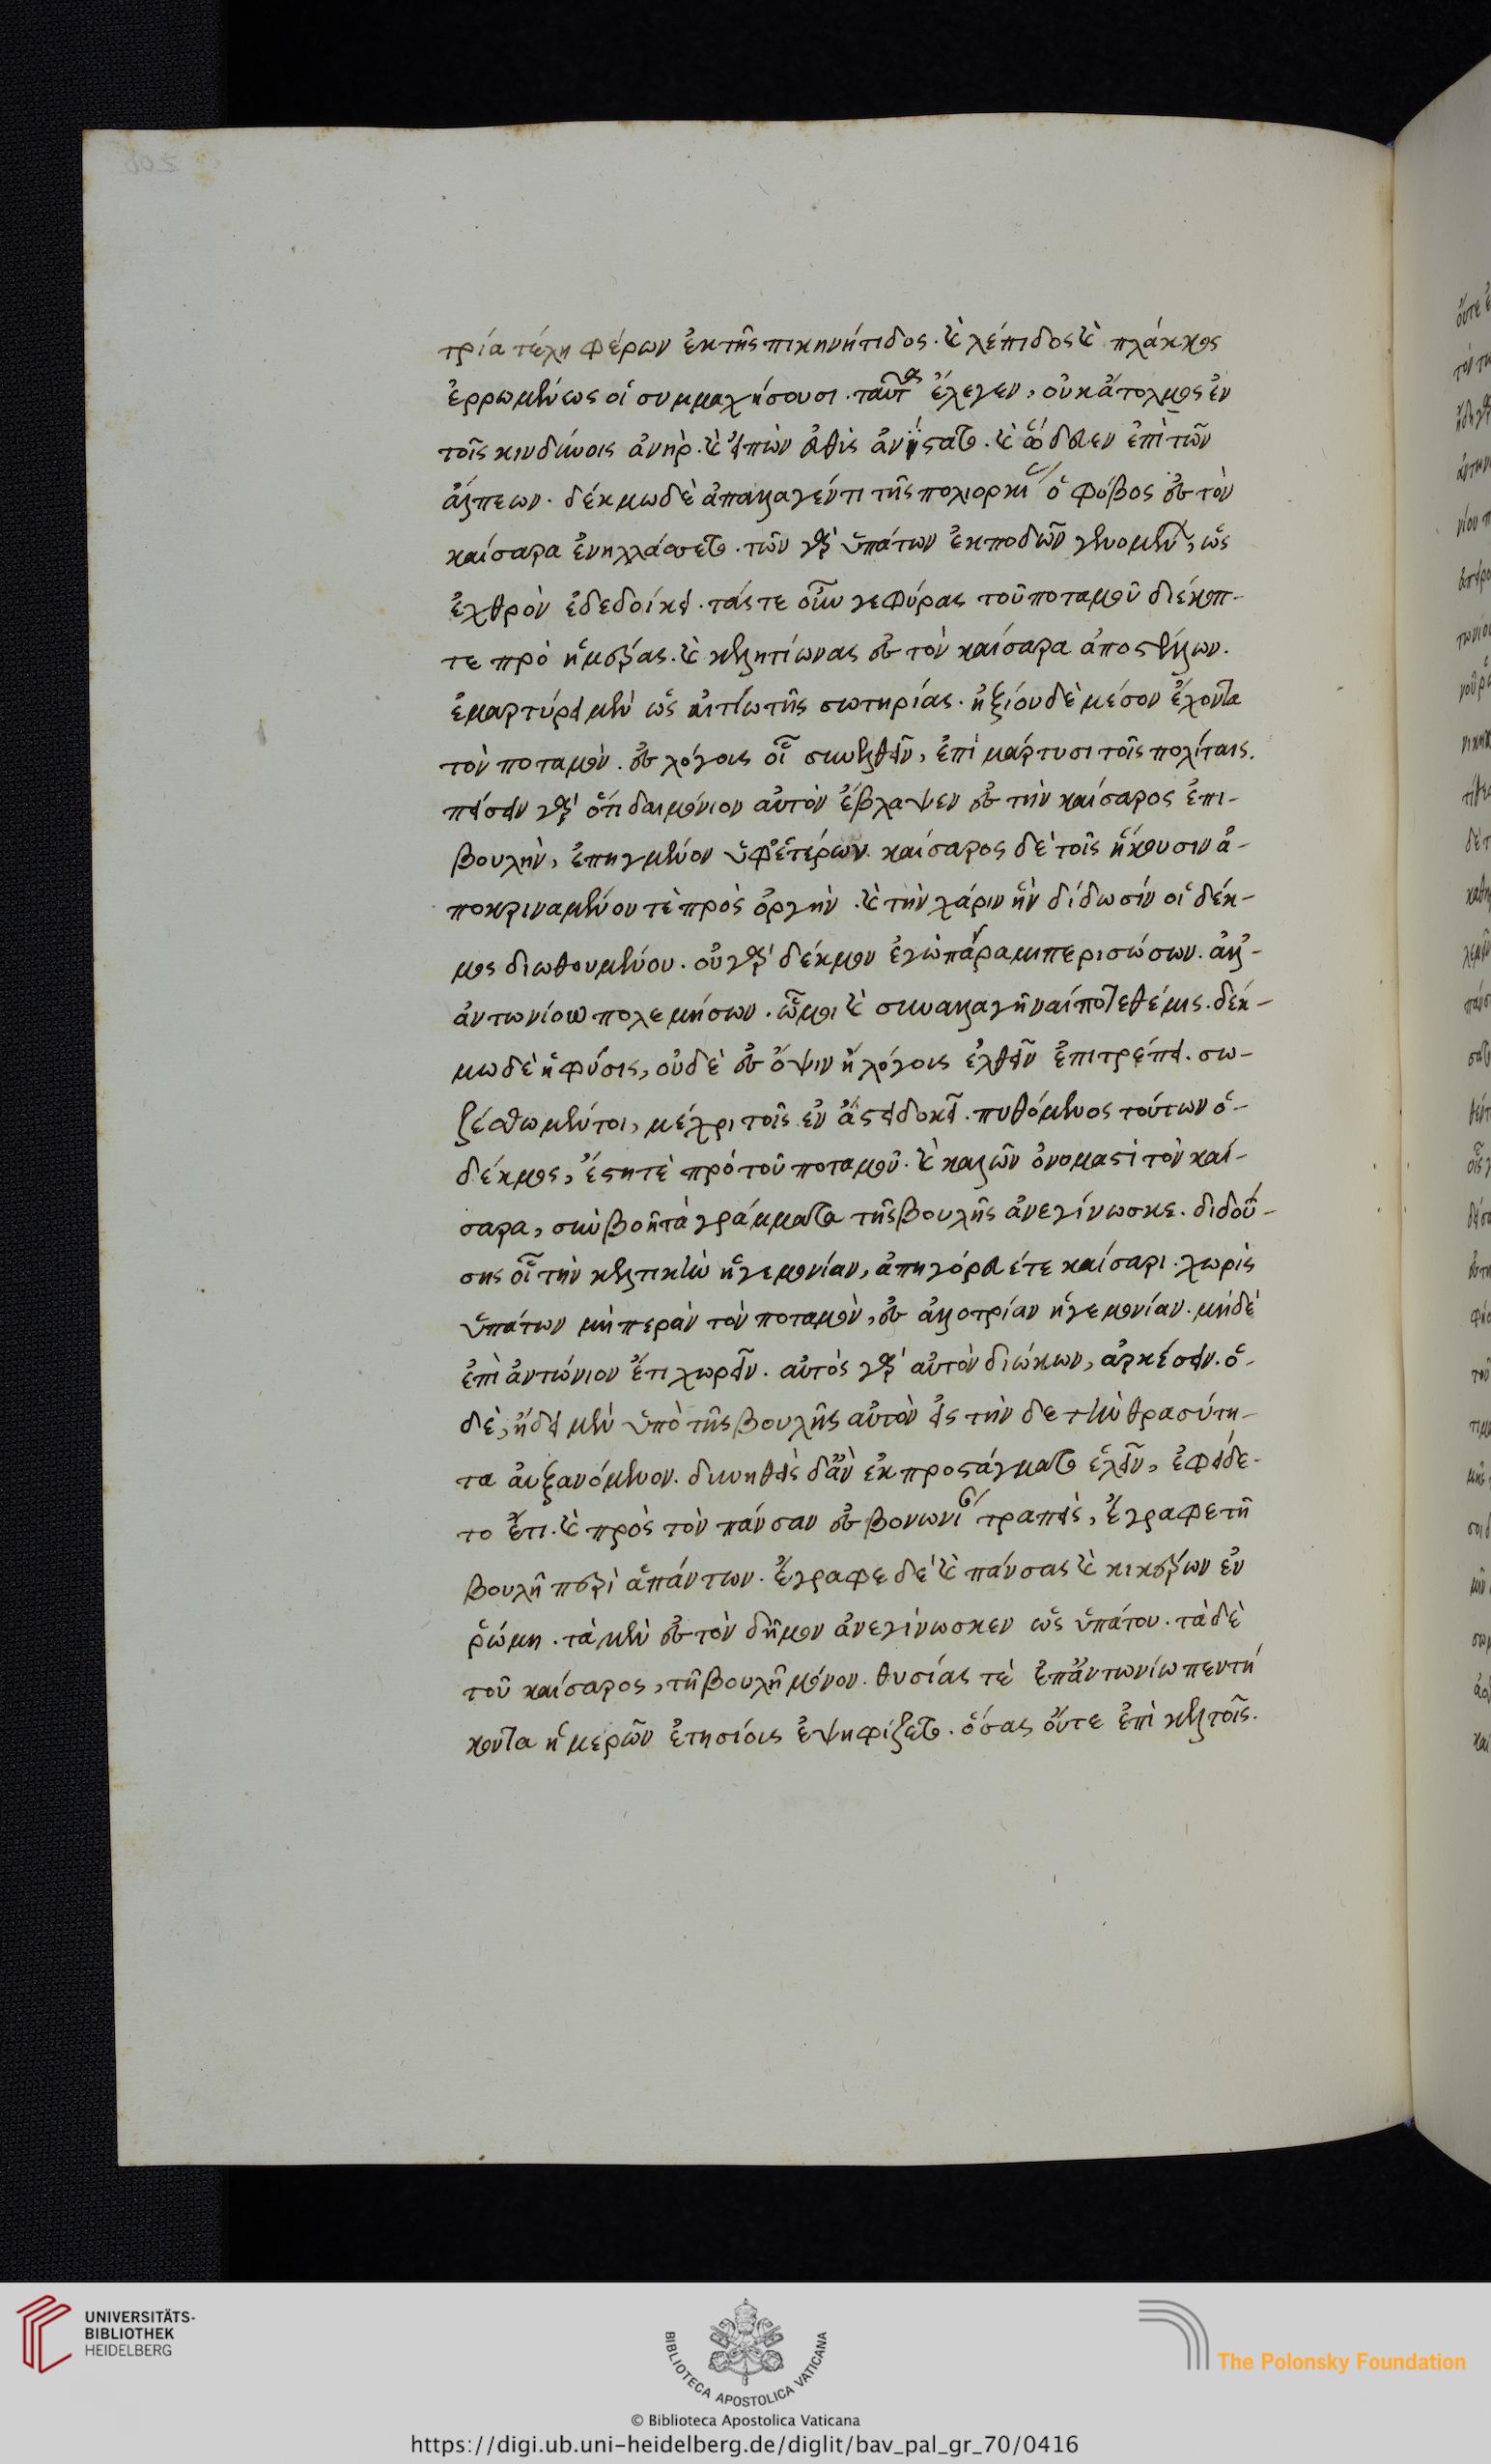 τρία τέλη φέρων ἐκ τῆς πικηνίτιδος. καὶ λέπιδος καὶ πλάγκος
ἐρρωμένως οἱ συμμαχήσουσι. ταῦτα ἔλεγεν, οὐκ ἄτολμος ἐν
τοῖς κινδύνοις ἀνήρ. καὶ εἰπὼν εὐθὺς ἀνίστατο. καὶ ὥδευεν ἐπὶ τῶν
ἄλπεων. δέκμω δὲ ἀπαλλαγέντι τῆς πολιορκίας ὁ φόβος ἐς τὸν
καίσαρα ἐνηλλάσσετο. τῶν γὰρ ὑπάτων ἐκποδὼν γενομένων, ὡς
ἐχθρὸν ἐδεδοίκει. τάς τε οὖν γεφύρας τοῦ ποταμοῦ διέκοπ-
τε πρὸ ἡμέρας. καὶ κελητίωνας ἐς τὸν καίσαρα ἀποστέλλων.
ἐμαρτύρει μὲν ὡς αἰτίω τῆς σωτηρίας. ἠξίου δὲ μέσον ἔχοντα
τὸν ποταμὸν. ἐς λόγους οἷ συνελθεῖν, ἐπὶ μάρτυσι τοῖς πολίταις.
πείσειν γὰρ ὅτι δαιμόνιον αὐτὸν ἔβλαψεν ἐς τὴν καίσαρος ἐπι-
βουλὴν, ἐπηγμένον ὑφ' ἑτέρων. καίσαρος δὲ τοῖς ἥκουσιν ἀ-
ποκριναμένου τὲ πρὸς ὀργὴν. καὶ τὴν χάριν ἣν δίδωσίν οἱ δέκ-
μος διωθουμένου. οὐ γὰρ δέκμον ἐγὼ πάρειμι περισώσων. ἀλλ'
ἀντωνίω πολεμήσων. ᾧ μοι καὶ συναλλαγῆναί ποτε θέμις. δέκ-
μω δὲ ἡ φύσις, οὐδὲ ἐς ὄψιν ἢ λόγους ἐλθεῖν ἐπιτρέπει. σω-
ζέσθω μέντοι, μέχρι τοῖς ἐν ἄστει δοκεῖ. πυθόμενος τούτων ὁ
δέκμος, ἔστη τὲ πρὸ τοῦ ποταμοῦ. καὶ καλῶν ὀνομαστὶ τὸν καί-
σαρα, σὺν βοῆ τὰ γράμματα τῆς βουλῆς ἀνεγίνωσκε. διδού-
σης οἷ τὴν κελτικὴν ἡγεμονίαν, ἀπηγόρευέ τε καίσαρι. χωρὶς
ὑπάτων μὴ περᾶν τὸν ποταμὸν, ἐς ἀλλοτρίαν ἡγεμονίαν. μηδὲ
ἐπὶ ἀντώνιον ἔτι χωρεῖν. αὐτὸς γὰρ αὐτὸν διώκων, ἀρκέσειν. ὁ
δὲ, ἤδει μὲν ὑπὸ τῆς βουλῆς αὐτὸν εἰς τὴν δε τὴν θρασύτη-
τα αὐξανόμενον. δυνηθεὶς δ' ἂν ἐκ προστάγματος ἑλεῖν, ἐφείδε-
το ἔτι. καὶ πρὸς τὸν πάνσαν ἐς βονωνίαν τραπεὶς, ἔγραφε τῆ
βουλῆ περὶ ἁπάντων. ἔγραφε δὲ καὶ πάνσας καὶ κικέρων ἐν
ῥώμη. τὰ μὲν ἐς τὸν δῆμον ἀνεγίνωσκεν ὡς ὑπάτου. τὰ δὲ
τοῦ καίσαρος, τῆ βουλῆ μόνον. θυσίας τὲ ἐπ' ἀντωνίω πεντή
κοντα ἡμερῶν ἐτησίοις ἐψηφίζετο. ὅσας οὔτε ἐπὶ κελτοῖς.
UNIVERSITÄTS-
BIBLIOTHEK
HEIDELBERG
BIBLIOTECA APOSTOLICA VATICANA
The Polonsky Foundation
© Biblioteca Apostolica Vaticana
https://digi.ub.uni-heidelberg.de/diglit/bav_pal_gr_70/0416